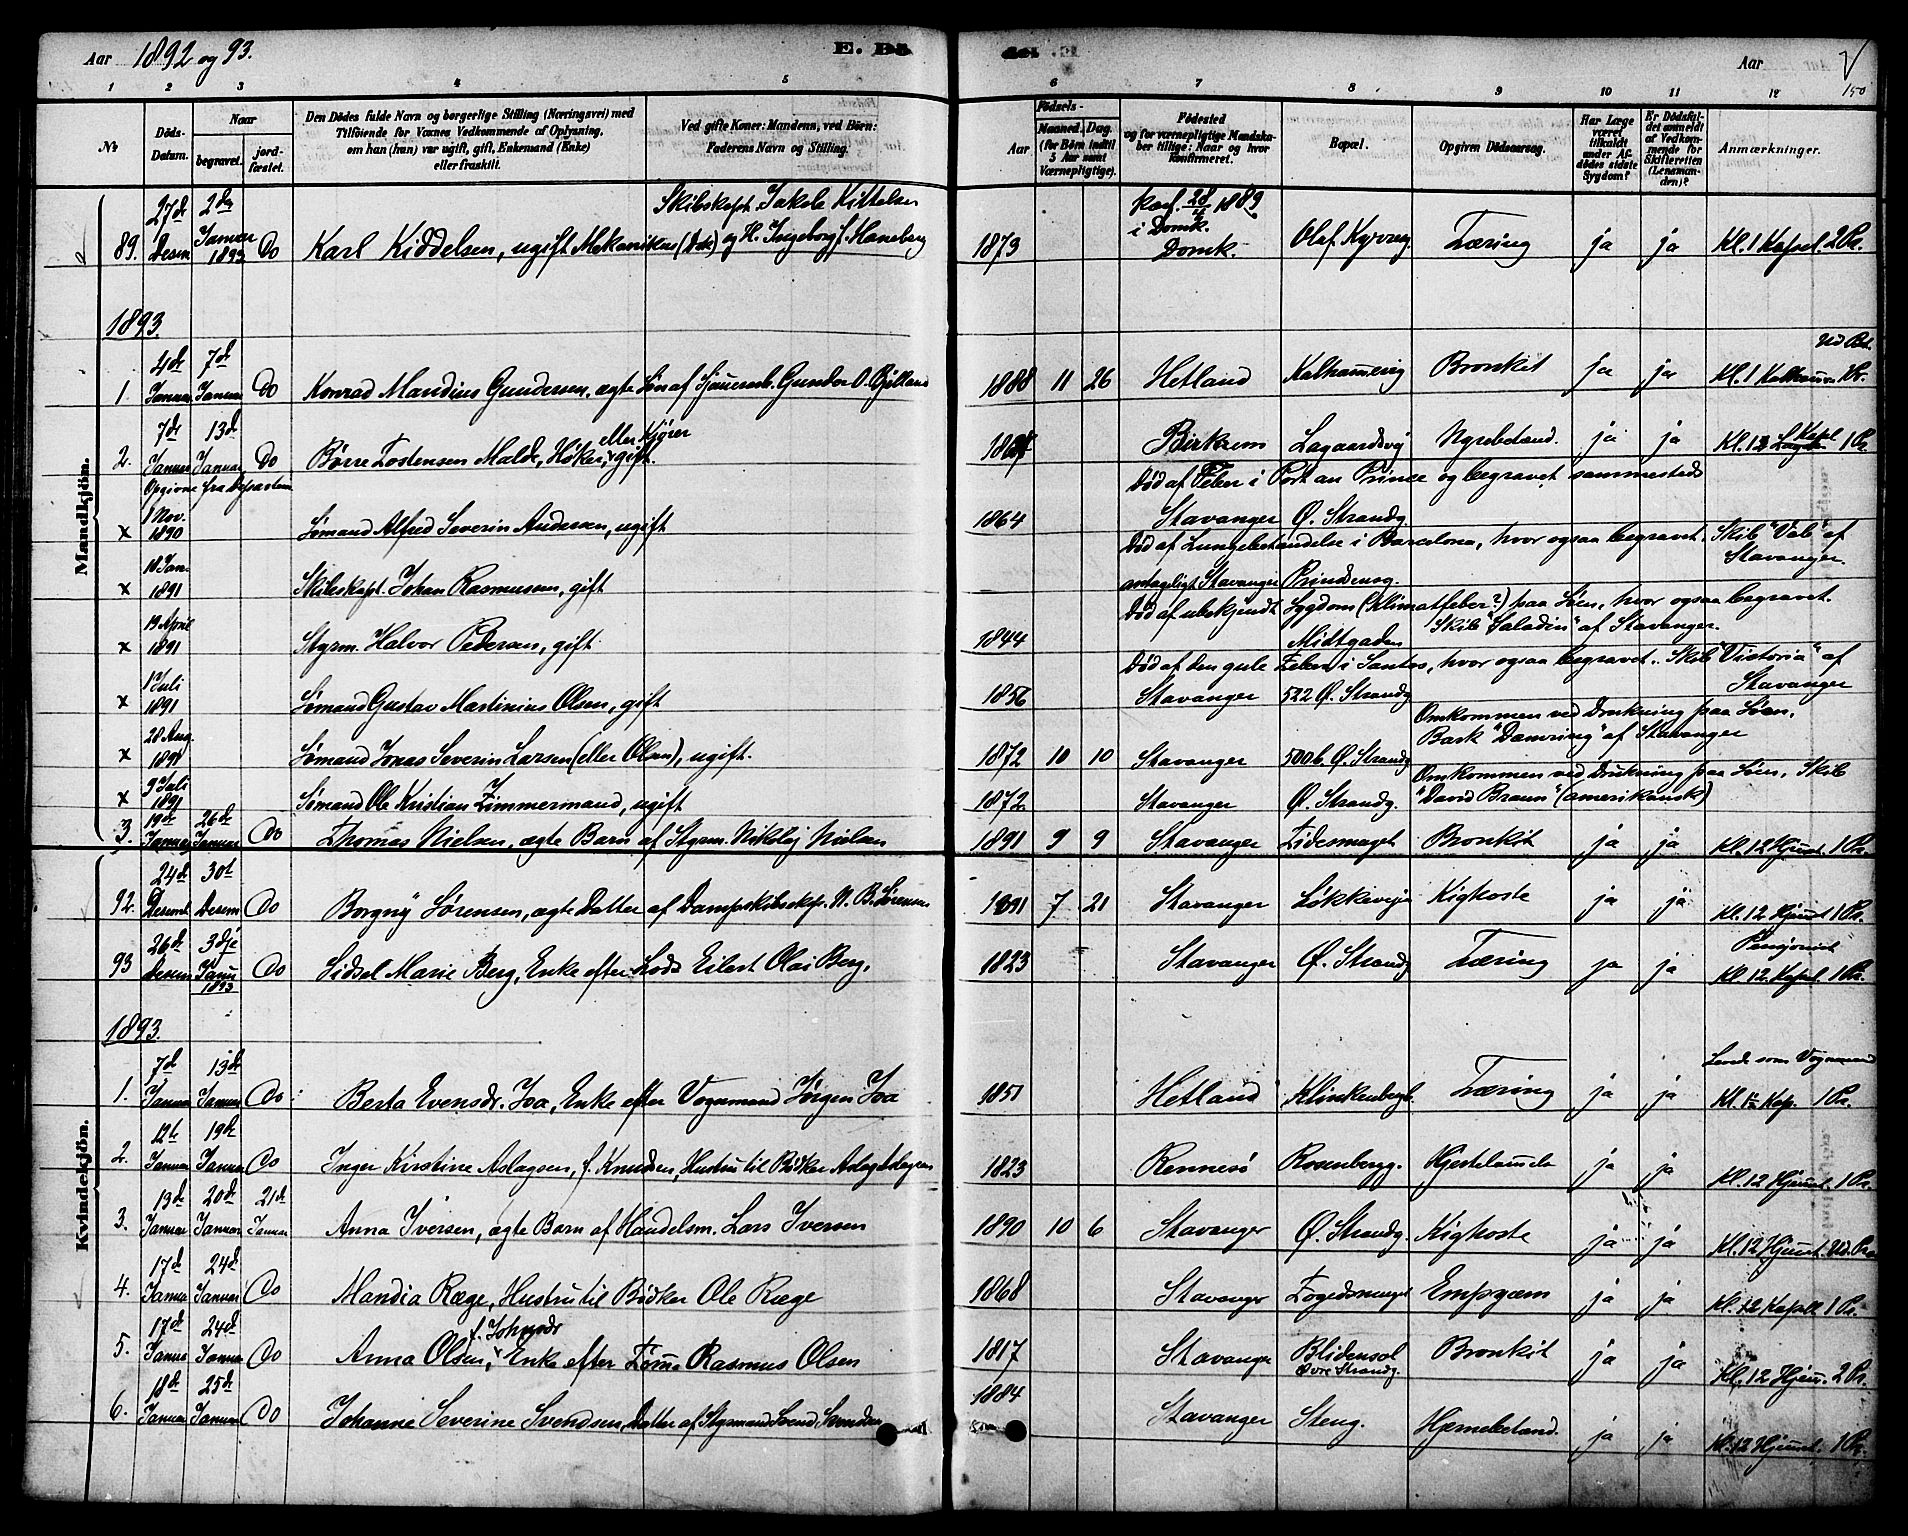 Aar 1892 og 93. E. Dö
döde. E. Aar 150
1 2 3 4 5 6 7 8 9 10 11 12
No
Döds-Datum.
Naar
begravet. jord-fæstet.
Den Dødes fulde Navn og borgerlige Stilling (Næringsvei) med
Tilføiende for Voxnes Vedkommende af Oplysning,
om han (hun) var ugift, gift, Enkemand (Enke)
eller fraskilt.
Ved gifte Koner: Mandens, ved Børn:
Faderens Navn og Stilling.
Aar
Fødsels-
Maaned. Dag.
(for Børn indtil 5 Aar samt Værnepligtige).
Fødested
og for værnepligtige Mandskaber tillige: Naar og hvor konfirmeret.
Bopæl.
Opgiven Dödsaarsag.
Har Læge været tilkaldt under Afdødes sidste Sygdom?
Er Dödsfaldet anmeldt af Vedkommende for Skifteretten (Lensmanden)?
Anmærkninger.
Mandkjön.
89. 27de Desem 2den Januar 1893 Do Karl Kiddelsen, ugift Mekanikus Skibskapt. Jakob Kittelsen og H. Ingeborg f. Haneberg 1873 Konf. 28/4 1889 i Domk. Domk. Olaf Kyrresg. Tæring ja ja Kl. 1 Kapel. 2 Pr.
1893.
1. 4de Januar 7de Januar Do Konrad Mandius Gundersen, ægte Søn af Gunder O. Bjelland 1888 11 26 Hetland Kalhammervig Bronkit ja ja Kl. 1
2. 7de Januar 13de Januar Do Børre Tostensen Malde, Høker, eller Kjører gift. Birkrem Lagaardsvej Nyrebetænd. ja ja Kl. 12 Kapel 1 Pr.
Opgivne fra Departem
x 1 Nov. 1890 Sømand Alfred Severin Andersen, ugift 1864 Stavanger Ø. Strandg.
Død af Feber i Port au Prince og begravet sammesteds
x 18 Jan. 1891 Skibskapt. Johan Rasmussen, gift antageligt Stavanger Prindsensg.
Død af Lungebetændelse i Barcelona, hvor ogsaa begravet. Skib "Vab" af Stavanger.
x 13 April 1891 Styrm. Halvor Pedersen, gift. 1844 Midtgaden
Død af ubekjendt Sygdom (Klimatfeber?) paa Søen, hvor ogsaa begravet. Skib "Saladin" af Stavanger.
x 1 Juli 1891 Sømand Gustav Martinius Olsen, gift 1856 Stavanger 522 Ø. Strandg.
Død af den gule Feber i Santos, hvor ogsaa begravet. Skib "Victoria" af Stavanger
x 28 Aug. 1891 Sømand Jonas Severin Larsen (eller Olsen), ugift. 1872 10 10 Stavanger 500 b. Ø. Strandg.
Omkommen ved Drukning paa Søen. Bark af Stavanger
x 9 Juli 1891 Sømand Ole Kristian Zimmermand, ugift 1872 Stavanger Ø. Strandg.
Omkommen ved Drukning paa Søen. Skib "David Braun" (amerikansk)
3. 19de Januar 26de Januar Do Thomas Nielsen, ægte Barn af Styrm. Nikolaj Nielsen 1891 9 9 Stavanger Bronkit ja ja Kl. 12 Hjemst. 1 Pr.
Kvindekjön.
92. 24de Desemb 30te Desem Do Borgny Sørensen, ægte Datter af Dampskibskpt. N. B. Sørensen 1891 7 21 Stavanger Løkkeveien Kighoste ja ja Kl. 12 Hjemst 1 Pr.
93 26de Desem 3dje Janu 1893 Do Sidsel Marie Berg, Enke efter Lods Eilert Olai Berg. 1823 Stavanger Ø. Strandg Tæring ja ja Pensjonist Kl. 12 Kapel 1 Pr.
1893.
1. 7de Januar 13de Januar Do Berta Evensdr. Joa, Enke efter Vognmand Jørgen Joa 1851 Hetland Klinkenbergb. Tæring ja ja Levede som Vognmand Kl. 12 Kap. 1 Pr.
2. 12te Januar 19de Januar Do Inger Kirstine Aslagsen, f. Knudsen, Hustru til Bødker Aslag Aslagsen 1823 Rennesø Rosenbergg. Hjertelamelse ja ja Kl. 12 Hjemst. 1 Pr.
3. 13de Januar 20de Januar 21de Januar Anna Iversen, ægte Barn af Handelsm. Lars Iversen 1890 10 6 Stavanger Ø. Strandg. Kighoste ja ja Kl. 12 Hjemst. Ud. Pr.
4. 17de Januar 24de Januar Do Mandia Ræge, Hustru til Bødker Ole Ræge 1868 Stavanger Empyæm ja ja Kl. 12 Kapell 1 Pr.
5. 17de Januar 24de Januar Do Anna Olsen, f. Johnsdr Enke efter Rasmus Olsen 1817 Stavanger Blidensol Øvre Strandg. Bronkit ja ja Kl. 12 Hjem. 2 Pr.
6. 18de Januar 25de Januar Do Johanne Severine Svendsen, Datter af Styrmand Svend Svendsen 1884 Stavanger Steng. Hjernebetænd. ja ja Kl. 12 Hjemst. 1 Pr.